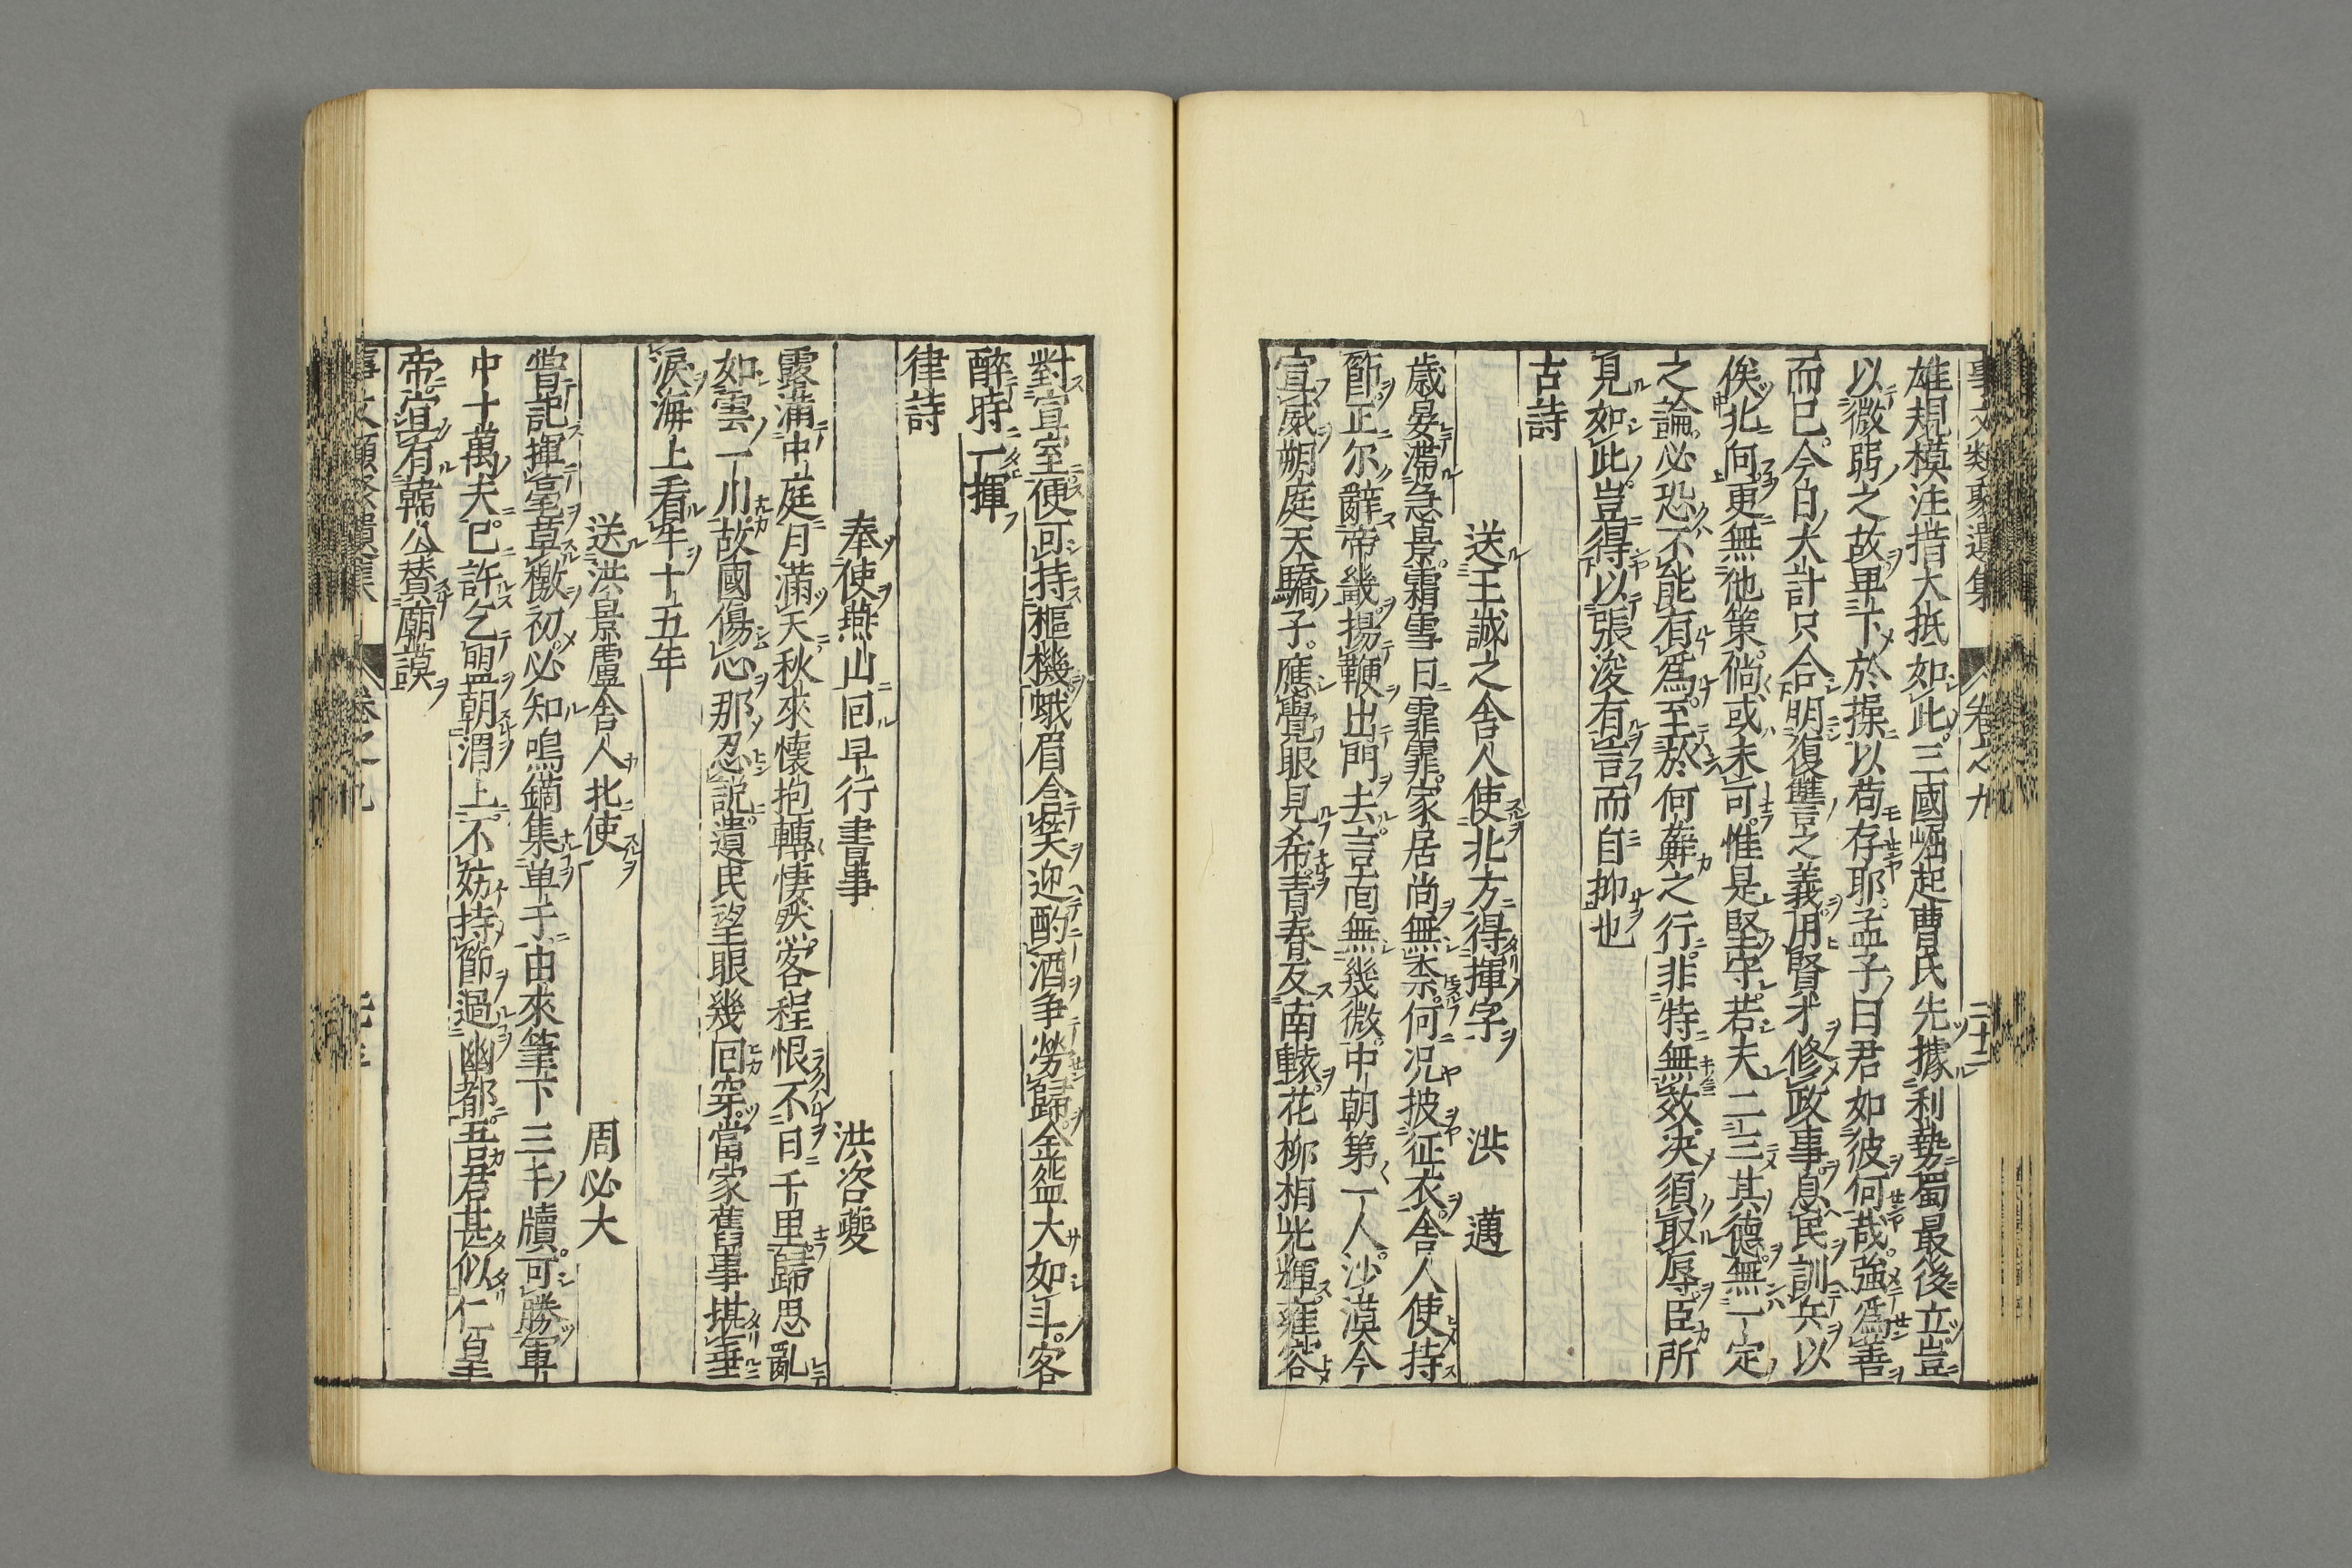 事文類聚遺集 卷之九 二十二
雄規模注措大抵如此三國崛起曹氏先據利勢蜀最後立豈
以微弱之故卑下於操以苟存耶孟子曰君如彼何哉強爲善
而已今日大計只合明復讐之義用賢才修政事息民訓兵以
俟北向更無他策倘或未可惟是堅守若夫二三其德無一定
之論必恐不能有爲至於何蘚之行非特無效决須取辱臣所
見如此豈得以張浚有言而自抑也
古詩
送王誠之舍人使北方得揮字 洪邁
歳晏滯急景霜雪日霏霏家居尚無柰何况披征衣舍人使持
節正尓辭帝畿揚鞭出門去言面無幾微中朝第一人沙漠今
宣威朔庭天驕子應覺眼見希青春友南轅花柳相光輝雍容
對宣室便可持樞機蛾眉含笑迎酌酒争勞歸金盌大如斗客
醉時一揮
律詩
奉使燕山回早行書事 洪咨夔
露滿中庭月滿天秋來懐抱轉悽然客程恨不日千里歸思亂
如雲一川故國傷心那忍説遺民望眼幾回穿當家舊事堪垂
淚海上看羊十五年
送洪景盧舍人北使 周必大
嘗記揮毫草檄初必知鳴鏑集单于由來筆下三千牘可勝軍
中十萬夫已許乞盟朝渭上不妨持節過幽都吾君甚似仁皇
帝宜有韓公賛廟謨